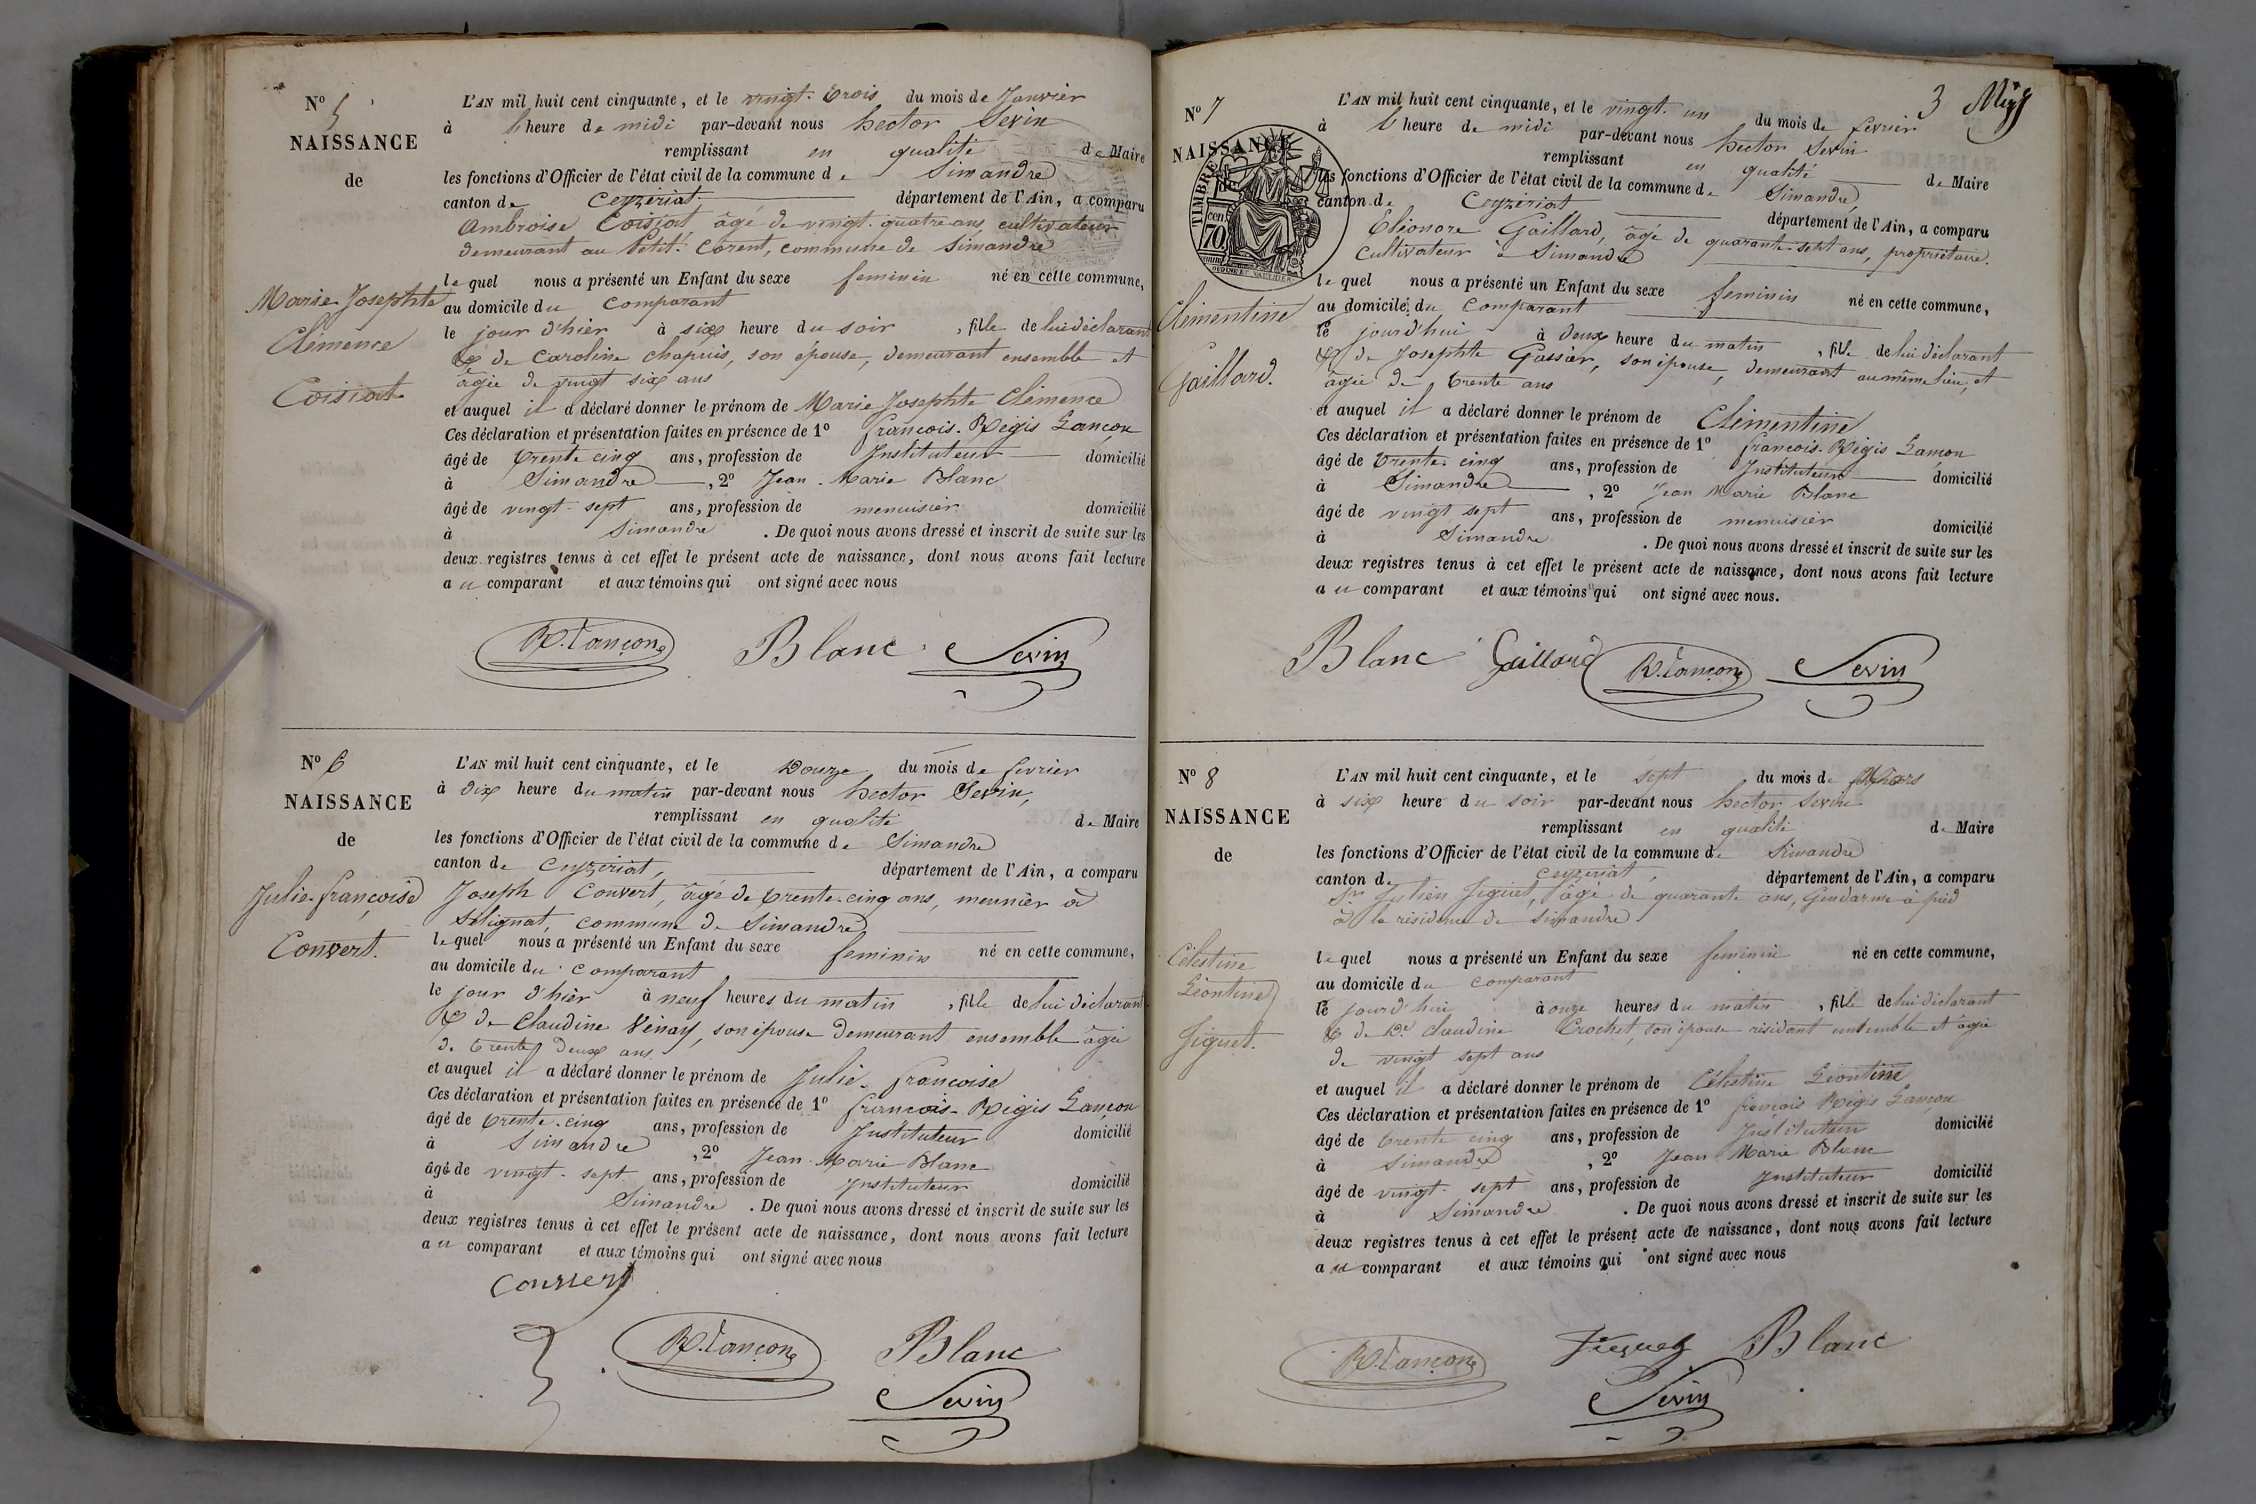 N° 5
NAISSANCE
de
Marie Josephte
Clémence
Coisiat
L'AN mil huit cent cinquante, et le vingt-trois du mois de Janvier
à heure de midi par-devant nous hector Sevin
remplissant en qualité de Maire
les fonctions d'Officier de l'état civil de la commune de Simandre
canton de Ceyzeriat, département de l'Ain, a comparu
Ambroise Coisiat âgé de vingt-quatre ans, cultivateur
demeurant au Petit Corent, commune de Simandre
lequel nous a présenté un Enfant du sexe feminin né en cette commune,
au domicile du Comparant
le jour d'hier à six heure du soir, fille de lui déclarant
& de Caroline Chapuis, son épouse, demeurant ensemble et
âgée de vingt six ans
et auquel il a déclaré donner le prénom de Marie Josephte Clémence
Ces déclaration et présentation faites en présence de 1° françois-Régis Lançon
âgé de trente cinq ans, profession de Instituteur domicilié
à Simandre, 2° Jean-Marie Blanc
âgé de vingt-sept ans, profession de menuisier domicilié
à Simandre. De quoi nous avons dressé et inscrit de suite sur les
deux registres tenus à cet effet le présent acte de naissance, dont nous avons fait lecture
au comparant et aux témoins qui ont signé avec nous
R. Lançon Blanc Sevin
N° 6
NAISSANCE
de
Julie-françoise
Convert.
L'AN mil huit cent cinquante, et le Douze du mois de fevrier
à dix heure du matin par-devant nous hector Sevin,
remplissant en qualité de Maire
les fonctions d'Officier de l'état civil de la commune de Simandre
canton de Ceyzeriat, département de l'Ain, a comparu
Joseph Convert, âgé de trente-cinq ans, meunier à
Sélignat, commune de Simandre
lequel nous a présenté un Enfant du sexe feminin né en cette commune,
au domicile du comparant
le jour d'hier à neuf heures du matin, fille de lui déclarant
& de Claudine Vénay, son épouse demeurant ensemble âgée
de trente deux ans
et auquel il a déclaré donner le prénom de Julie-françoise
Ces déclaration et présentation faites en présence de 1° françois-Régis Lançon
âgé de trente-cinq ans, profession de Instituteur domicilié
à Simandre, 2° Jean-Marie Blanc
âgé de vingt-sept ans, profession de Instituteur domicilié
à Simandre. De quoi nous avons dressé et inscrit de suite sur les
deux registres tenus à cet effet le présent acte de naissance, dont nous avons fait lecture
au comparant et aux témoins qui ont signé avec nous
Convert
R. Lançon Blanc
Sevin
3
N° 7
NAISSANCE
TIMBRE
70
cen
Clementine
Gaillard.
L'AN mil huit cent cinquante, et le vingt-un du mois de fevrier
à heure de midi par-devant nous hector Sevin
remplissant en qualité de Maire
les fonctions d'Officier de l'état civil de la commune de Simandre,
canton de Ceyzeriat département de l'Ain, a comparu
Eléonore Gaillard, âgé de quarante-sept ans, propriétaire
Cultivateur à Simandre
lequel nous a présenté un Enfant du sexe feminin né en cette commune,
au domicile du Comparant
le jourd'hui à deux heure du matin, fille de lui déclarant
& de Josephte Gassier, son épouse, demeurant au même lieu, et
âgée de trente ans
et auquel il a déclaré donner le prénom de Clémentine
Ces déclaration et présentation faites en présence de 1° françois-Régis Lançon
âgé de trente-cinq ans, profession de Instituteur domicilié
à Simandre, 2° Jean Marie Blanc
âgé de vingt sept ans, profession de menuisier domicilié
à Simandre. De quoi nous avons dressé et inscrit de suite sur les
deux registres tenus à cet effet le présent acte de naissance, dont nous avons fait lecture
au comparant et aux témoins qui ont signé avec nous.
Blanc Gaillard R. Lançon Sevin
N° 8
NAISSANCE
de
Célestine
Léontine
Jiguet.
L'AN mil huit cent cinquante, et le sept du mois de Mars
à six heure du soir par-devant nous hector Sevin
remplissant en qualité de Maire
les fonctions d'Officier de l'état civil de la commune de Simandre
canton de Ceyzeriat, département de l'Ain, a comparu
Sr Julien Jiguet, âgé de quarante ans, Gendarme à pied
à la résidence de Simandre
lequel nous a présenté un Enfant du sexe feminin né en cette commune,
au domicile du comparant
le jourd'hui à onze heures du matin, fille de lui déclarant
& de De Claudine Crochet, son épouse résidant ensemble et âgée
de vingt sept ans
et auquel il a déclaré donner le prénom de Célestine Léontine
Ces déclaration et présentation faites en présence de 1° françois Régis Lançon
âgé de trente cinq ans, profession de Instituteur domicilié
à Simandre, 2° Jean Marie Blanc
âgé de vingt-sept ans, profession de Instituteur domicilié
à Simandre. De quoi nous avons dressé et inscrit de suite sur les
deux registres tenus à cet effet le présent acte de naissance, dont nous avons fait lecture
au comparant et aux témoins qui ont signé avec nous
R. Lançon Jiguet Blanc
Sevin